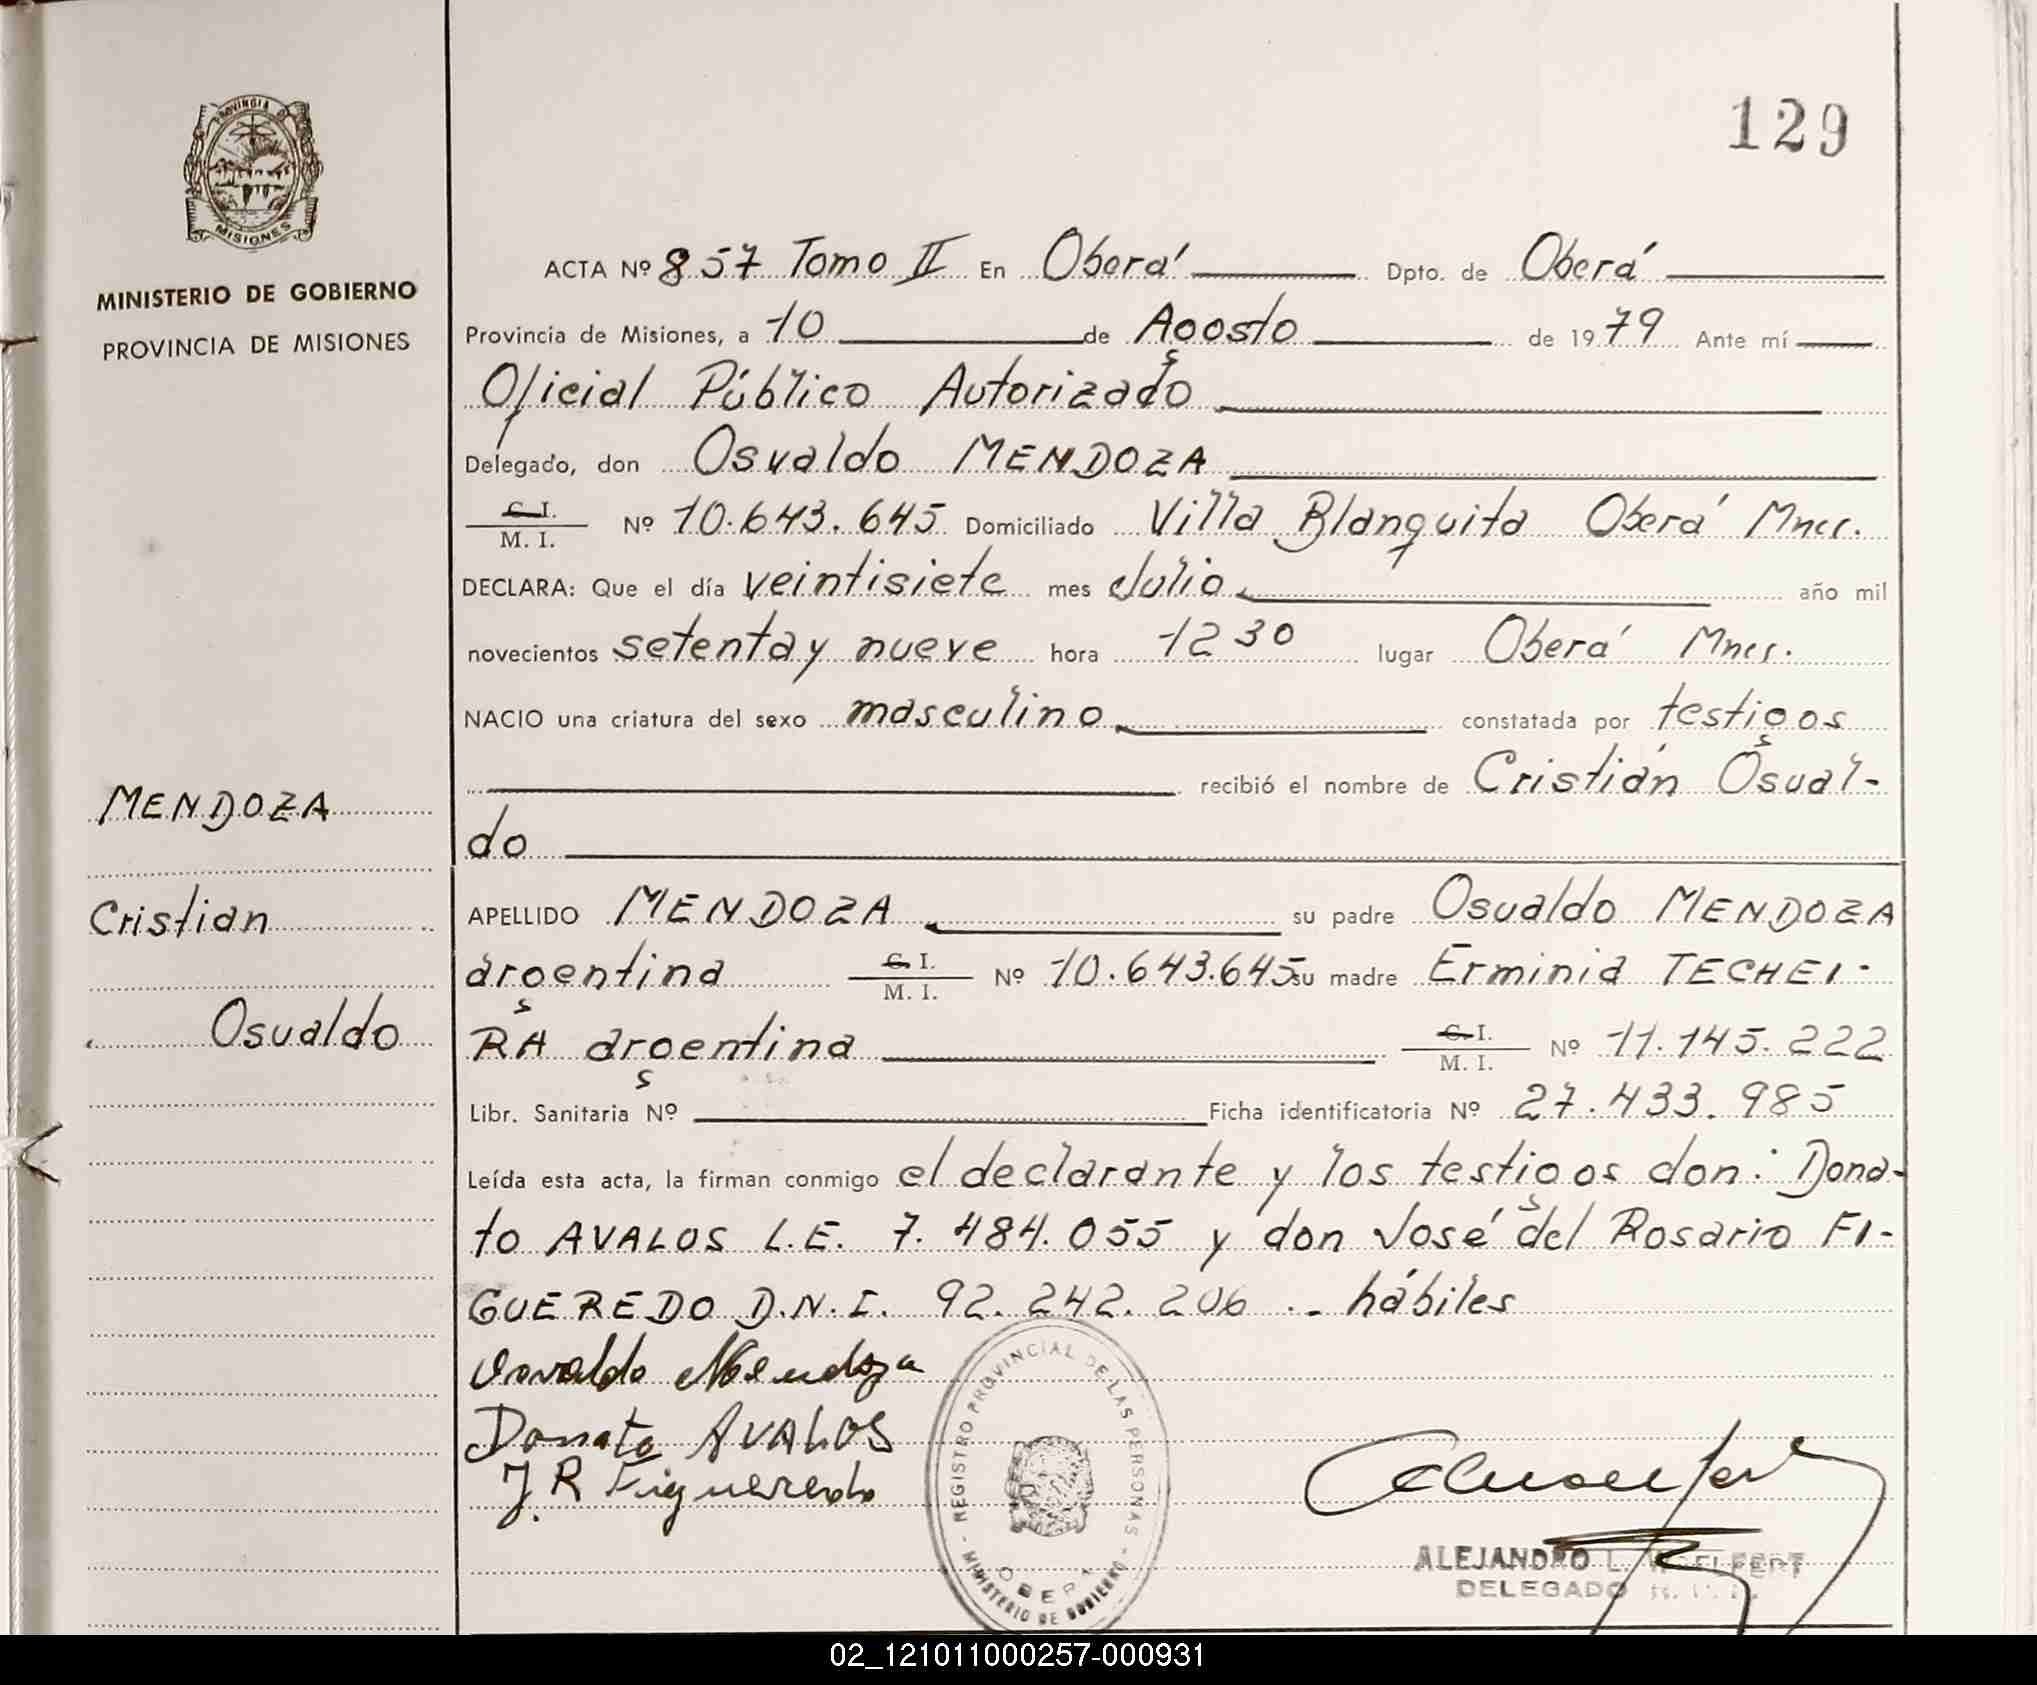 129
PROVINCIA DE
MISIONES
MINISTERIO DE GOBIERNO
PROVINCIA DE MISIONES
ACTA Nº 857 Tomo II En Oberá Dpto. de Oberá
Provincia de Misiones, a 10 de Agosto de 1979 Ante mí
Oficial Público Autorizado
Delegado, don Osvaldo MENDOZA
C. I. / M. I. Nº 10.643.645 Domiciliado Villa Blanquita Oberá Mnes.
DECLARA: Que el día veintisiete mes Julio año mil
novecientos setenta y nueve hora 12 30 lugar Oberá Mnes.
NACIO una criatura del sexo masculino constatada por testigos
recibió el nombre de Cristián Osval-
do
MENDOZA
Cristian
Osualdo
APELLIDO MENDOZA su padre Osualdo MENDOZA
argentina C. I. / M. I. Nº 10.643.645 su madre Erminia TECHEI-
RA argentina C. I. / M. I. Nº 11.145.222
Libr. Sanitaria Nº Ficha identificatoria Nº 27.433.985
Leída esta acta, la firman conmigo el declarante y los testigos don: Dona-
to AVALOS L.E. 7.484.055 y don José del Rosario FI-
GUEREDO D.N.I. 92.242.206 .- hábiles
Osvaldo Mendoza
Donato AVALOS
J. R Figueredo
REGISTRO PROVINCIAL DE LAS PERSONAS
OBERA
MINISTERIO DE GOBIERNO
ALEJANDRO L.
DELEGADO
02_121011000257-000931